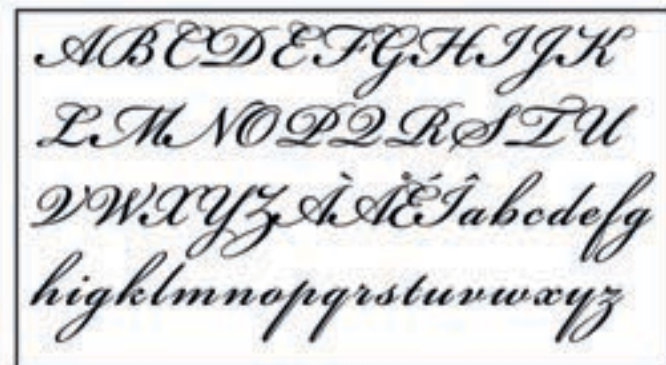 ABCDEFGHIJK
LMNOPQRSTU
VWXYZÀÅÉÎabcdefg
higklmnopqrstuvwxyz